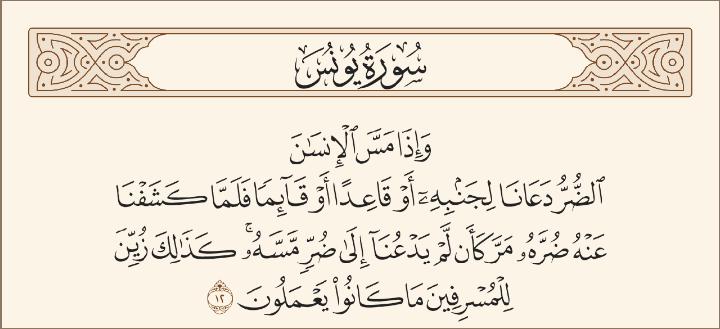 سُورَةُ يُونُسَ
وَإِذَا مَسَّ ٱلْإِنسَٰنَ
ٱلضُّرُّ دَعَانَا لِجَنۢبِهِۦٓ أَوْ قَاعِدًا أَوْ قَآئِمًا فَلَمَّا كَشَفْنَا
عَنْهُ ضُرَّهُۥ مَرَّ كَأَن لَّمْ يَدْعُنَآ إِلَىٰ ضُرٍّ مَّسَّهُۥ ۚ كَذَٰلِكَ زُيِّنَ
لِلْمُسْرِفِينَ مَا كَانُوا۟ يَعْمَلُونَ ١٢